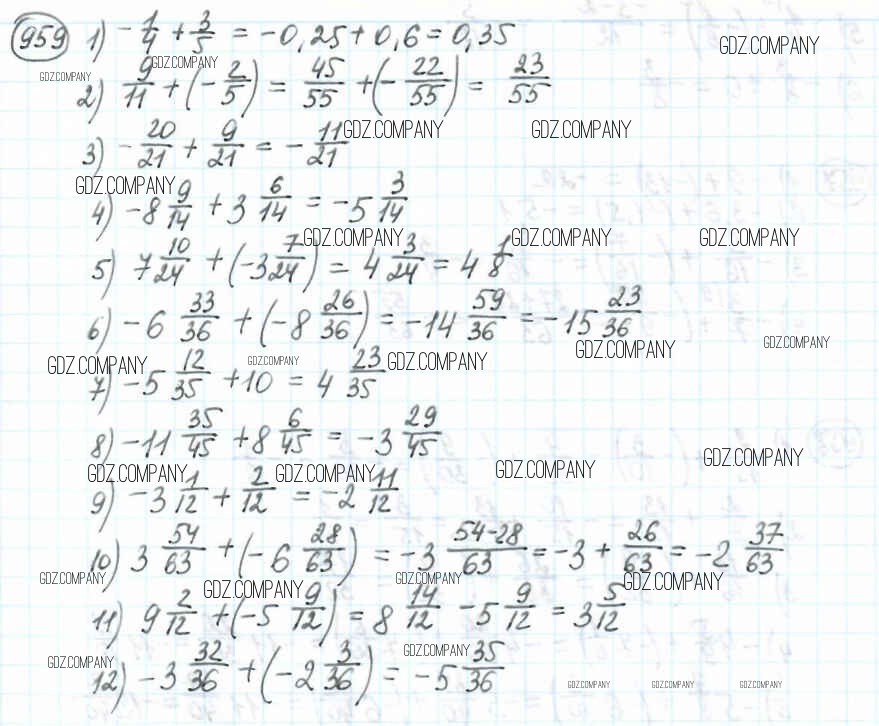 959 1) -1/4 + 3/5 = -0,25 + 0,6 = 0,35
GDZ.COMPANY
GDZ.COMPANY GDZ.COMPANY
2) 9/11 + (-2/5) = 45/55 + (-22/55) = 23/55
GDZ.COMPANY GDZ.COMPANY
3) -20/21 + 9/21 = -11/21
GDZ.COMPANY
4) -8 9/14 + 3 6/14 = -5 3/14
GDZ.COMPANY GDZ.COMPANY GDZ.COMPANY
5) 7 10/24 + (-3 7/24) = 4 3/24 = 4 1/8
6) -6 33/36 + (-8 26/36) = -14 59/36 = -15 23/36
GDZ.COMPANY GDZ.COMPANY
GDZ.COMPANY GDZ.COMPANY GDZ.COMPANY
7) -5 12/35 + 10 = 4 23/35
8) -11 35/45 + 8 6/45 = -3 29/45
GDZ.COMPANY GDZ.COMPANY GDZ.COMPANY GDZ.COMPANY
9) -3 1/12 + 2/12 = -2 11/12
10) 3 54/63 + (-6 28/63) = -3 54-28/63 = -3 + 26/63 = -2 37/63
GDZ.COMPANY GDZ.COMPANY GDZ.COMPANY GDZ.COMPANY
11) 9 2/12 + (-5 9/12) = 8 14/12 - 5 9/12 = 3 5/12
GDZ.COMPANY GDZ.COMPANY
12) -3 32/36 + (-2 3/36) = -5 35/36
GDZ.COMPANY GDZ.COMPANY GDZ.COMPANY